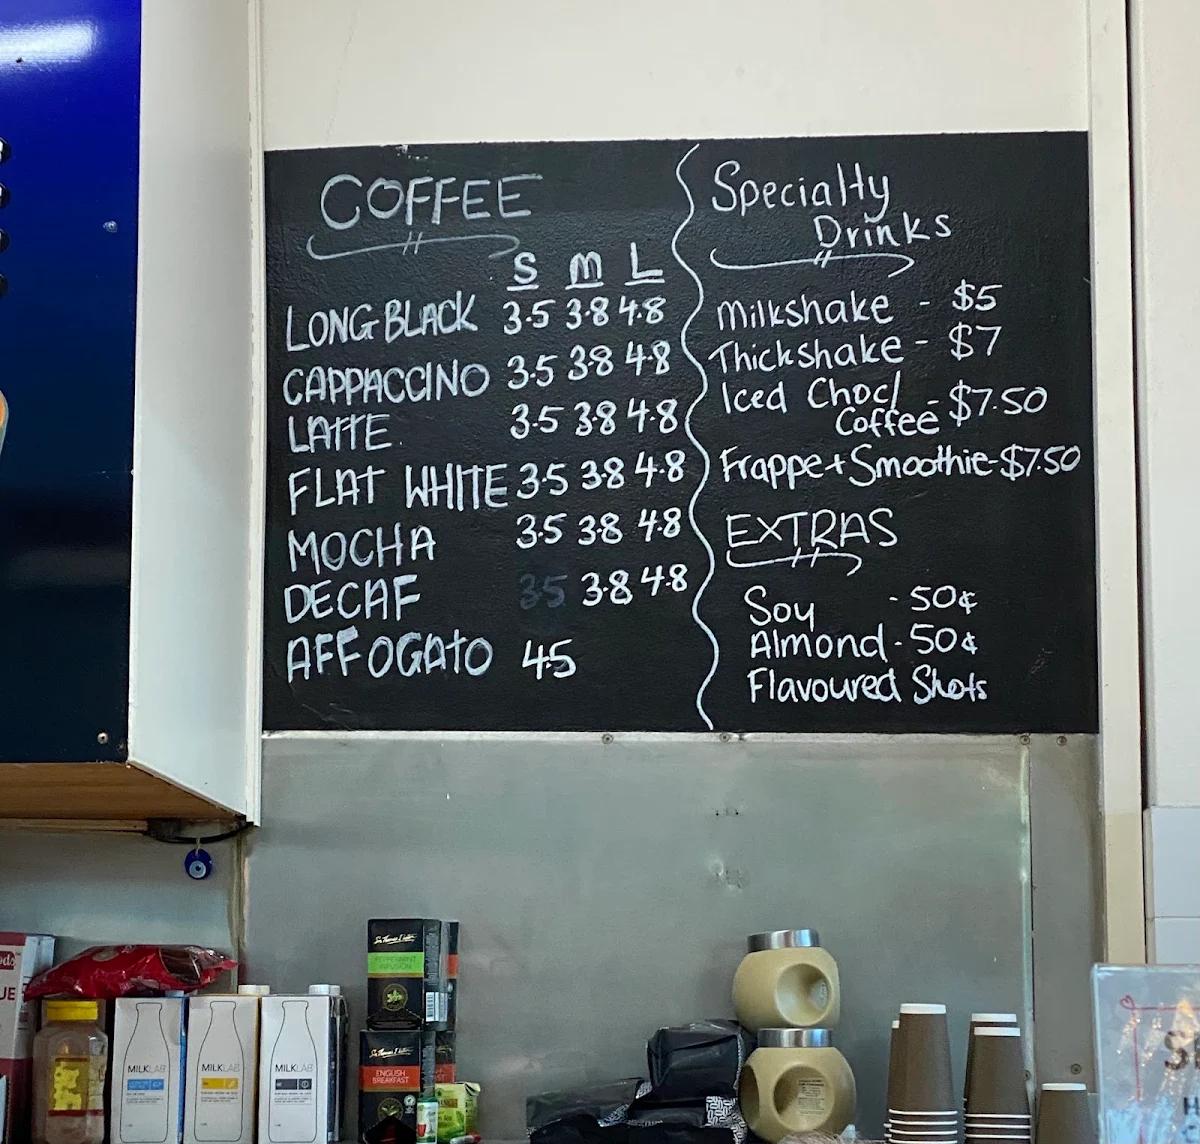 COFFEE
S M L
LONG BLACK 3.5 3.8 4.8
CAPPACCINO 3.5 3.8 4.8
LATTE 3.5 3.8 4.8
FLAT WHITE 3.5 3.8 4.8
MOCHA 3.5 3.8 4.8
DECAF 3.5 3.8 4.8
AFFOGATO 4.5
Specialty
Drinks
Milkshake - $5
Thickshake - $7
Iced Choc/
Coffee - $7.50
Frappe + Smoothie - $7.50
EXTRAS
Soy - 50¢
Almond - 50¢
Flavoured Shots
PEPPERMINT
INFUSION
ENGLISH
BREAKFAST
MILKLAB
MILKLAB
MILKLAB